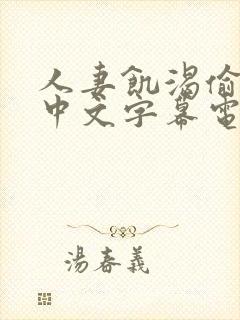 人妻飢渴偷
中文字幕電
湯春義